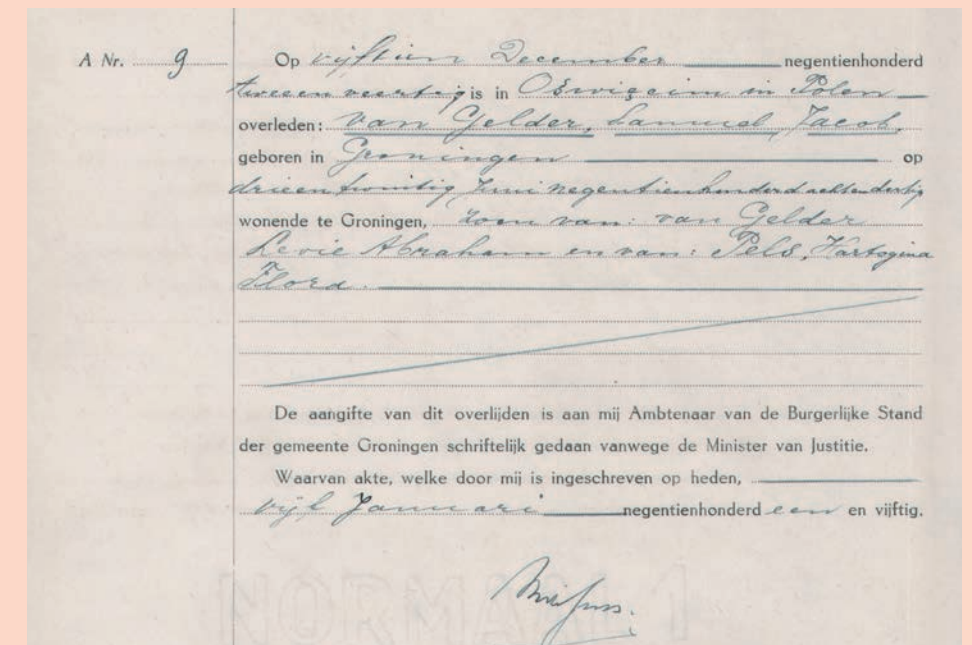 A Nr. 9
Op vijftien December negentienhonderd
tweeenveertig is in Oświęcim in Polen
overleden: van Gelder, Samuel, Jacob,
geboren in Groningen op
drieentwintig Juni negentienhonderd achtendertig
wonende te Groningen, zoon van: van Gelder
Levie Abraham en van: Pels, Hartogina
Flora.
De aangifte van dit overlijden is aan mij Ambtenaar van de Burgerlijke Stand
der gemeente Groningen schriftelijk gedaan vanwege de Minister van Justitie.
Waarvan akte, welke door mij is ingeschreven op heden,
vijf Januari negentienhonderd een en vijftig.
NORMAAL 1